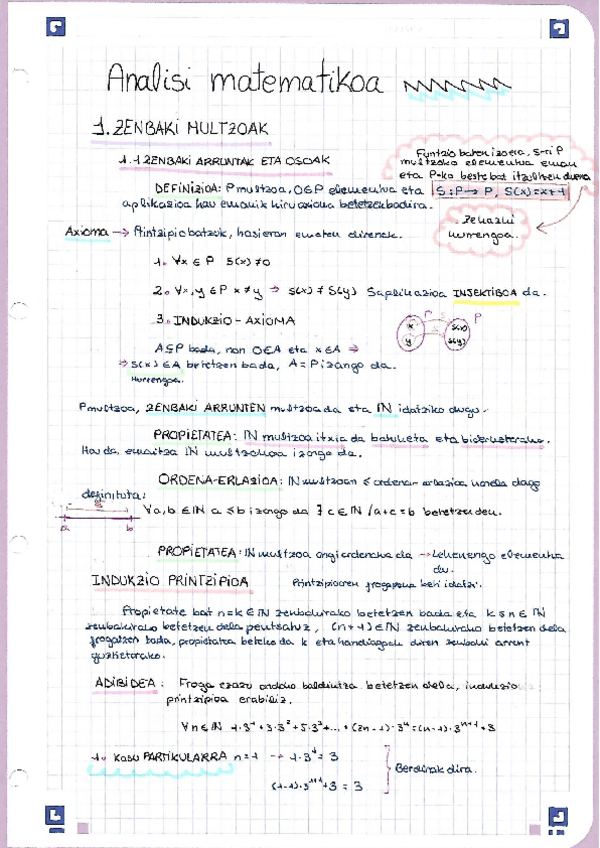 Analisi matematikoa
1. ZENBAKI MULTZOAK
1.1 ZENBAKI ARRUNTAK ETA OSOAK
Funtzio baten izaera, S-ri P
multzoko elementua eman
eta P-ko beste bat itzultzen duena
DEFINIZIOA: P multzoa, 0∈P elementua eta S:P→P, S(x)=x+1
aplikazioa hau emanik hiru axioma betetzen badira.
Zehazki
hurrengoa.
Axioma → Printzipio batzuk, hasieran ematen direnak.
1. ∀x ∈ P S(x)≠0
2. ∀x,y ∈ P x≠y ⇒ S(x) ≠ S(y) S aplikazioa INJEKTIBOA da.
3. INDUKZIO-AXIOMA
P S P
x S(x)
y S(y)
A⊆P bada, non 0∈A eta x∈A ⇒
⇒ S(x)∈A betetzen bada, A=P izango da.
Hurrengoa.
P multzoa, ZENBAKI ARRUNTEN multzoa da eta IN idatziko dugu.
PROPIETATEA: IN multzoa itxia da batuketa eta biderketarako.
Hau da, emaitza IN multzokoa izango da.
ORDENA-ERLAZIOA: IN multzoan ≤ ordena-erlazioa honela dago
definituta:
∀a,b ∈ IN a ≤ b izango da ∃ c ∈ IN / a+c=b betetzen den.
a b
PROPIETATEA: IN multzoa ongi ordenatua da → Lehenengo elementua
du.
INDUKZIO PRINTZIPIOA Printzipioaren frogapena beti idatzi.
Propietate bat n=k∈IN zenbakirako betetzen bada eta k≤n∈IN
zenbakirako betetzen dela pentsatuz, (n+1)∈IN zenbakirako betetzen dela
frogatzen bada, propietatea beteko da k eta handiagoak diren zenbaki arrunt
guztietarako.
ADIBIDEA: Froga ezazu ondoko baldintza betetzen dela, indukzio
printzipioa erabiliz.
∀n∈IN 1·3¹+3·3²+5·3³+...+(2n-1)·3ⁿ=(n-1)·3ⁿ⁺¹+3
1. KASU PARTIKULARRA n=1 → 1·3¹=3
(1-1)·3¹⁺¹+3=3
Berdinak dira.